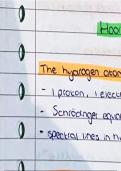 Hoo
The hydrogen atom
- 1 proton, 1 elect
- Schrödinger equa
- spectral lines in h